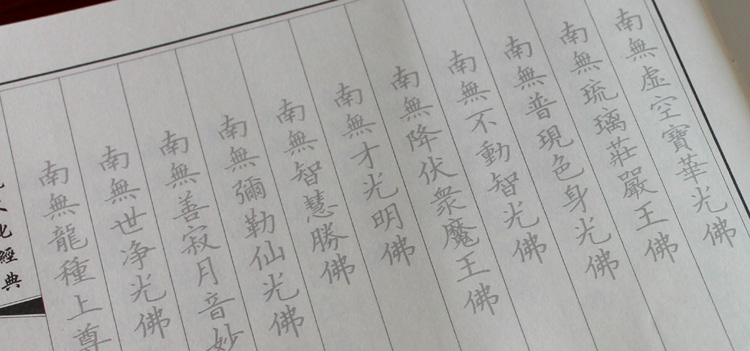 南無虛空寶華光佛
南無琉璃莊嚴王佛
南無普現色身光佛
南無不動智光佛
南無降伏衆魔王佛
南無才光明佛
南無智慧勝佛
南無彌勒仙光佛
南無善寂月音妙
南無世净光佛
南無龍種上尊
化經典